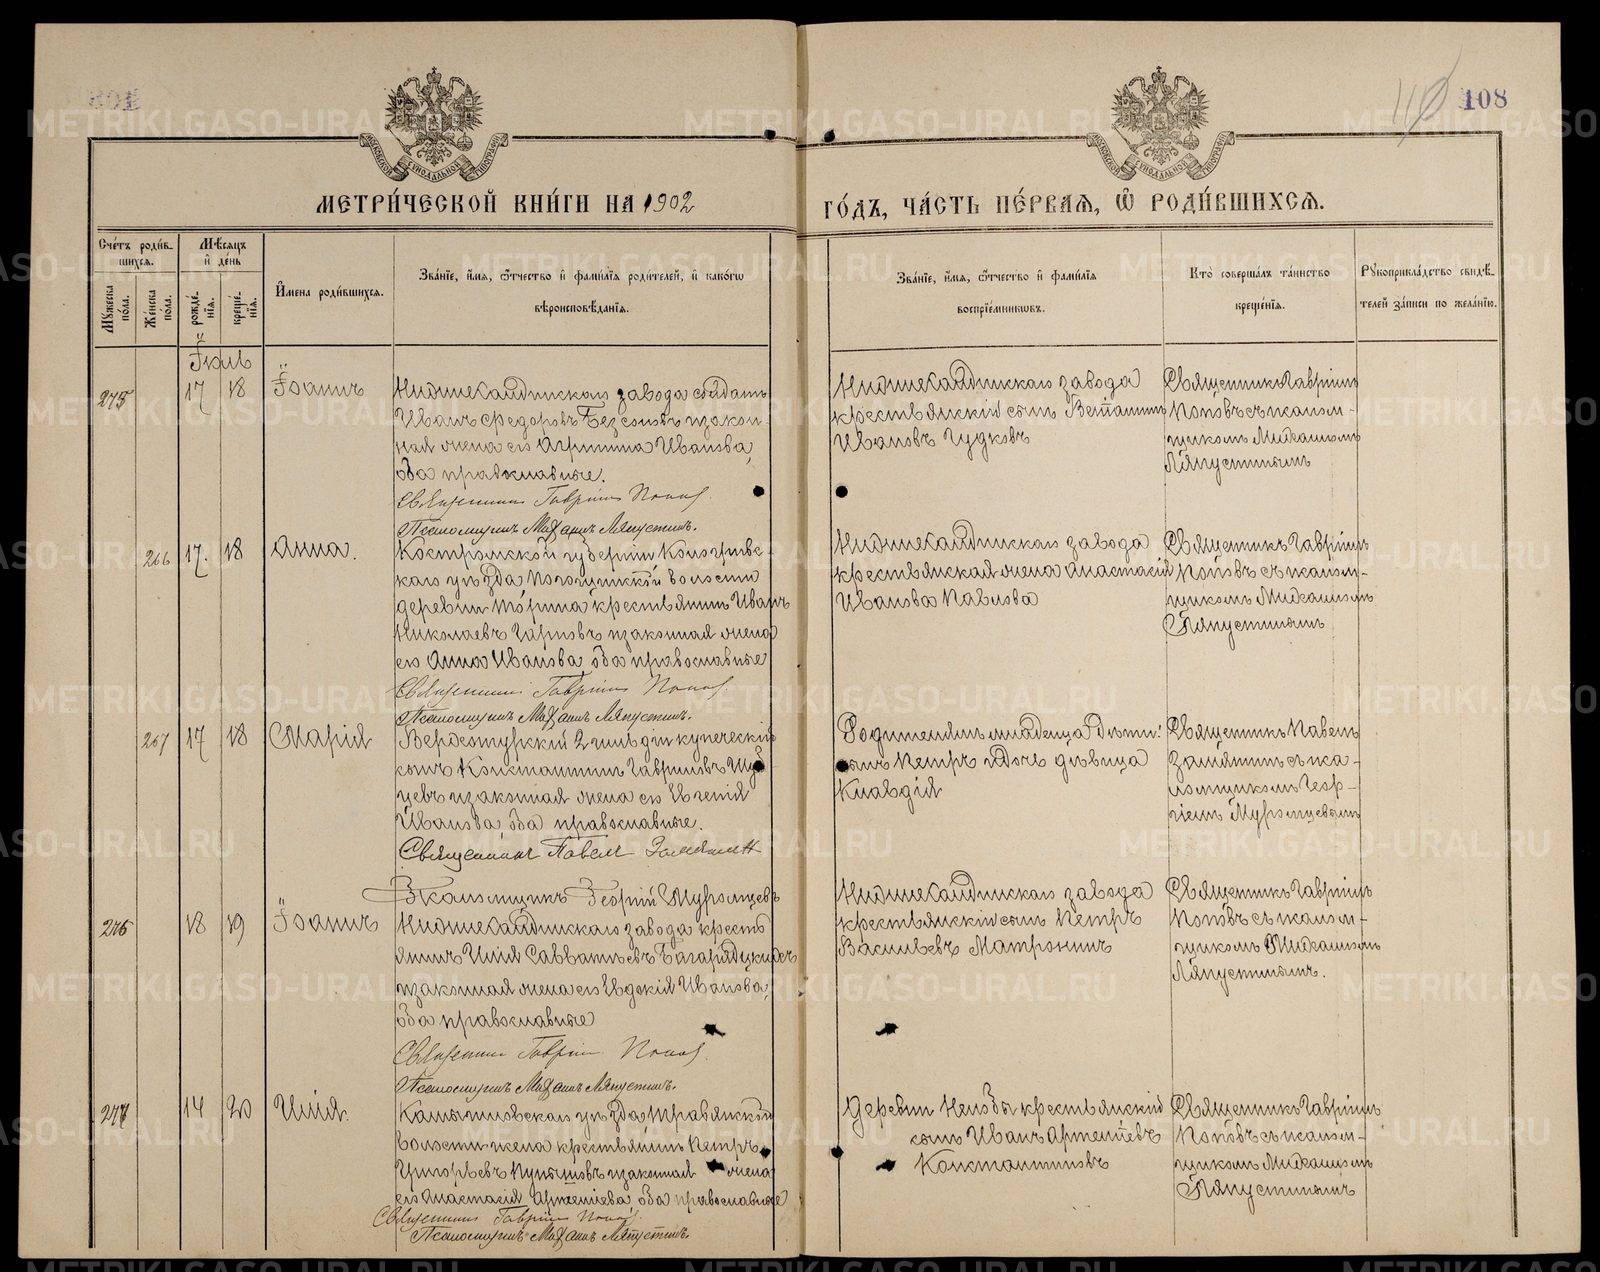 108
МЕТРИ́ЧЕСКОЙ КНИ́ГИ НА 1902
ГО́ДЪ, ЧА́СТЬ ПЕ́РВАЯ, Ѡ҆ РОДИ́ВШИХСЯ.
МОСКОВСКОЙ СѴНОДАЛЬНОЙ ТИПОГРАФІИ
МОСКОВСКОЙ СѴНОДАЛЬНОЙ ТИПОГРАФІИ
Сче́тъ роди́вшихся.
Му́жеска по́ла.
Же́нска по́ла.
Мѣ́сяцъ и҆ де́нь
рожде́нїя.
креще́нїя.
И҆мена роди́вшихся.
Зва́нїе, и҆́мя, ѻ҆́тчество и҆ фами́лїя роди́телей, и҆ како́гѡ
вѣроисповѣ́данїя.
Зва́нїе, и҆́мя, ѻ҆́тчество и҆ фами́лїя
воспрїе́мникѡвъ.
Кто̀ соверша́лъ та́инство
креще́нїя.
Рꙋкоприкла́дство свидѣ́-
телей за́писи по жела́нїю.
Іюль
275
17
18
Іоаннъ
Нижнесалдинскаго завода солдатъ
Иванъ Федоровъ Безсоновъ и закон-
ная жена его Агрипина Иванова,
оба православные.
Священникъ Гавріилъ Поповъ.
Псаломщикъ Михаилъ Ляпустинъ.
Нижнесалдинскаго завода
крестьянскій сынъ Веніаминъ
Ивановъ Гудковъ
Священникъ Гавріилъ
Поповъ съ псалом-
щикомъ Михаиломъ
Ляпустинымъ
266
17.
18
Анна.
Костромской губерніи Кологривс-
каго уѣзда
волости
деревни
крестьянинъ Иванъ
Николаевъ
и законная жена
его Анна Иванова оба православные
Священникъ Гавріилъ Поповъ.
Псаломщикъ Михаилъ Ляпустинъ.
Нижнесалдинскаго завода
крестьянская жена Анастасія
Иванова Павлова
Священникъ Гавріилъ
Поповъ съ псалом-
щикомъ Михаиломъ
Ляпустинымъ
267
17
18
Марія
Верхотурскій 2 гильдіи купеческій
сынъ Константинъ Гавриловъ
и законная жена его Евгенія
Иванова, оба православные.
Священникъ Павелъ Замятинъ
Псаломщикъ Георгій Муромцевъ
Родителей младенца дѣти:
сынъ Петръ и дочь дѣвица
Клавдія
Священникъ Павелъ
Замятинъ съ пса-
ломщикомъ Геор-
гіемъ Муромцевымъ
276
18
19
Іоаннъ
Нижнесалдинскаго завода кресть
янинъ Илія Савватіевъ
и законная жена его Евдокія Иванова,
оба православные
Священникъ Гавріилъ Поповъ.
Псаломщикъ Михаилъ Ляпустинъ.
Нижнесалдинскаго завода
крестьянскій сынъ Петръ
Васильевъ Матронинъ
Священникъ Гавріилъ
Поповъ съ псалом-
щикомъ Михаиломъ
Ляпустинымъ.
277
14
20
Илія.
Камышловскаго уѣзда Травянской
волости
крестьянинъ Петръ
Григорьевъ
и законная жена
его Анастасія Артеміева, оба православные
Священникъ Гавріилъ Поповъ.
Псаломщикъ Михаилъ Ляпустинъ.
Деревни
крестьянскій
сынъ Иванъ Артеміевъ
Константиновъ
Священникъ Гавріилъ
Поповъ съ псалом-
щикомъ Михаиломъ
Ляпустинымъ
METRIKI.GASO-URAL.RU